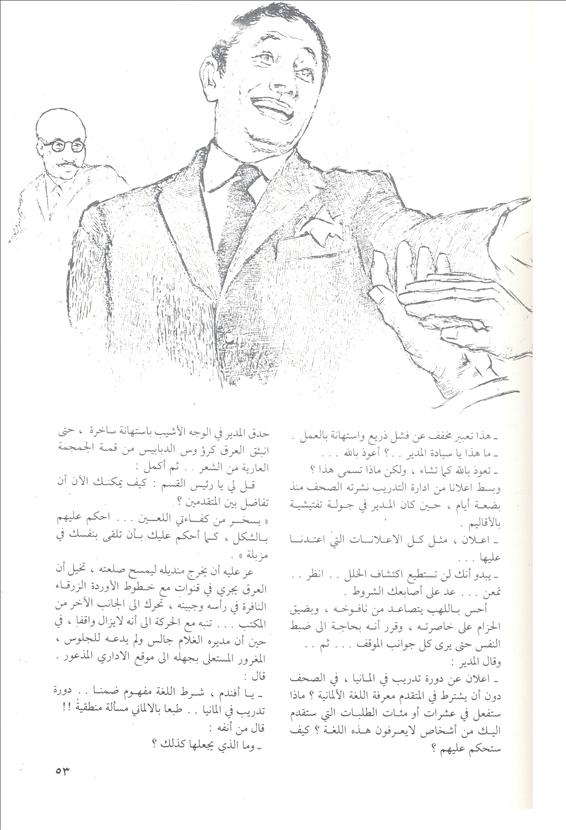 ـ هذا تعبير مخفف عن فشل ذريع واستهانة بالعمل .
ـ ما هذا يا سيادة المدير . . ؟ أعوذ بالله . . .
ـ تعوذ بالله كما تشاء ، ولكن ماذا تسمى هذا ؟
وبسط اعلانا من ادارة التدريب نشرته الصحف منذ
بضعة أيام ، حين كان المدير في جولة تفتيشية
بالأقاليم .
ـ اعلان ، مثل كل الاعلانات التي اعتدنا
عليها . . .
ـ يبدو أنك لن تستطيع اكتشاف الخلل . . انظر . .
تمعن . . . عد على أصابعك الشروط .
أحس باللهب يتصاعد من نافوخه ، وبضيق
الحزام على خاصرته ، وقرر أنه بحاجة الى ضبط
النفس حتى يرى كل جوانب الموقف . . . ثم . .
وقال المدير :
ـ اعلان عن دورة تدريب في المانيا ، في الصحف
دون أن يشترط في المتقدم معرفة اللغة الألمانية ؟ ماذا
ستفعل في عشرات أو مئات الطلبات التي ستقدم
اليك من أشخاص لايعرفون هذه اللغة ؟ كيف
ستحكم عليهم ؟
حدق المدير في الوجه الأشيب باستهانة ساخرة ، حتى
انبثق العرق كرؤوس الدبابيس من قمة الجمجمة
العارية من الشعر . . ثم أكمل :
قل لي يا رئيس القسم : كيف يمكنك الآن أن
تفاضل بين المتقدمين ؟
« يسخر من كفاءتي اللعين . . . احكم عليهم
بالشكل ، كما أحكم عليك بأن تلقى بنفسك في
مزبلة » .
عز عليه أن يخرج منديله ليمسح صلعته ، تخيل أن
العرق يجري في قنوات مع خطوط الأوردة الزرقاء
النافرة في رأسه وجبينه ، تحرك الى الجانب الآخر من
المكتب . . . تنبه مع الحركة الى أنه لايزال واقفا ، في
حين أن مديره الغلام جالس ولم يدعه للجلوس ،
المغرور المستعلى بجهله الى موقع الاداري المذعور .
قال :
ـ يا أفندم ، شرط اللغة مفهوم ضمنا . . دورة
تدريب في المانيا . . طبعا بالالماني مسألة منطقية !!
قال من أنفه :
ـ وما الذي يجعلها كذلك ؟
٥٣